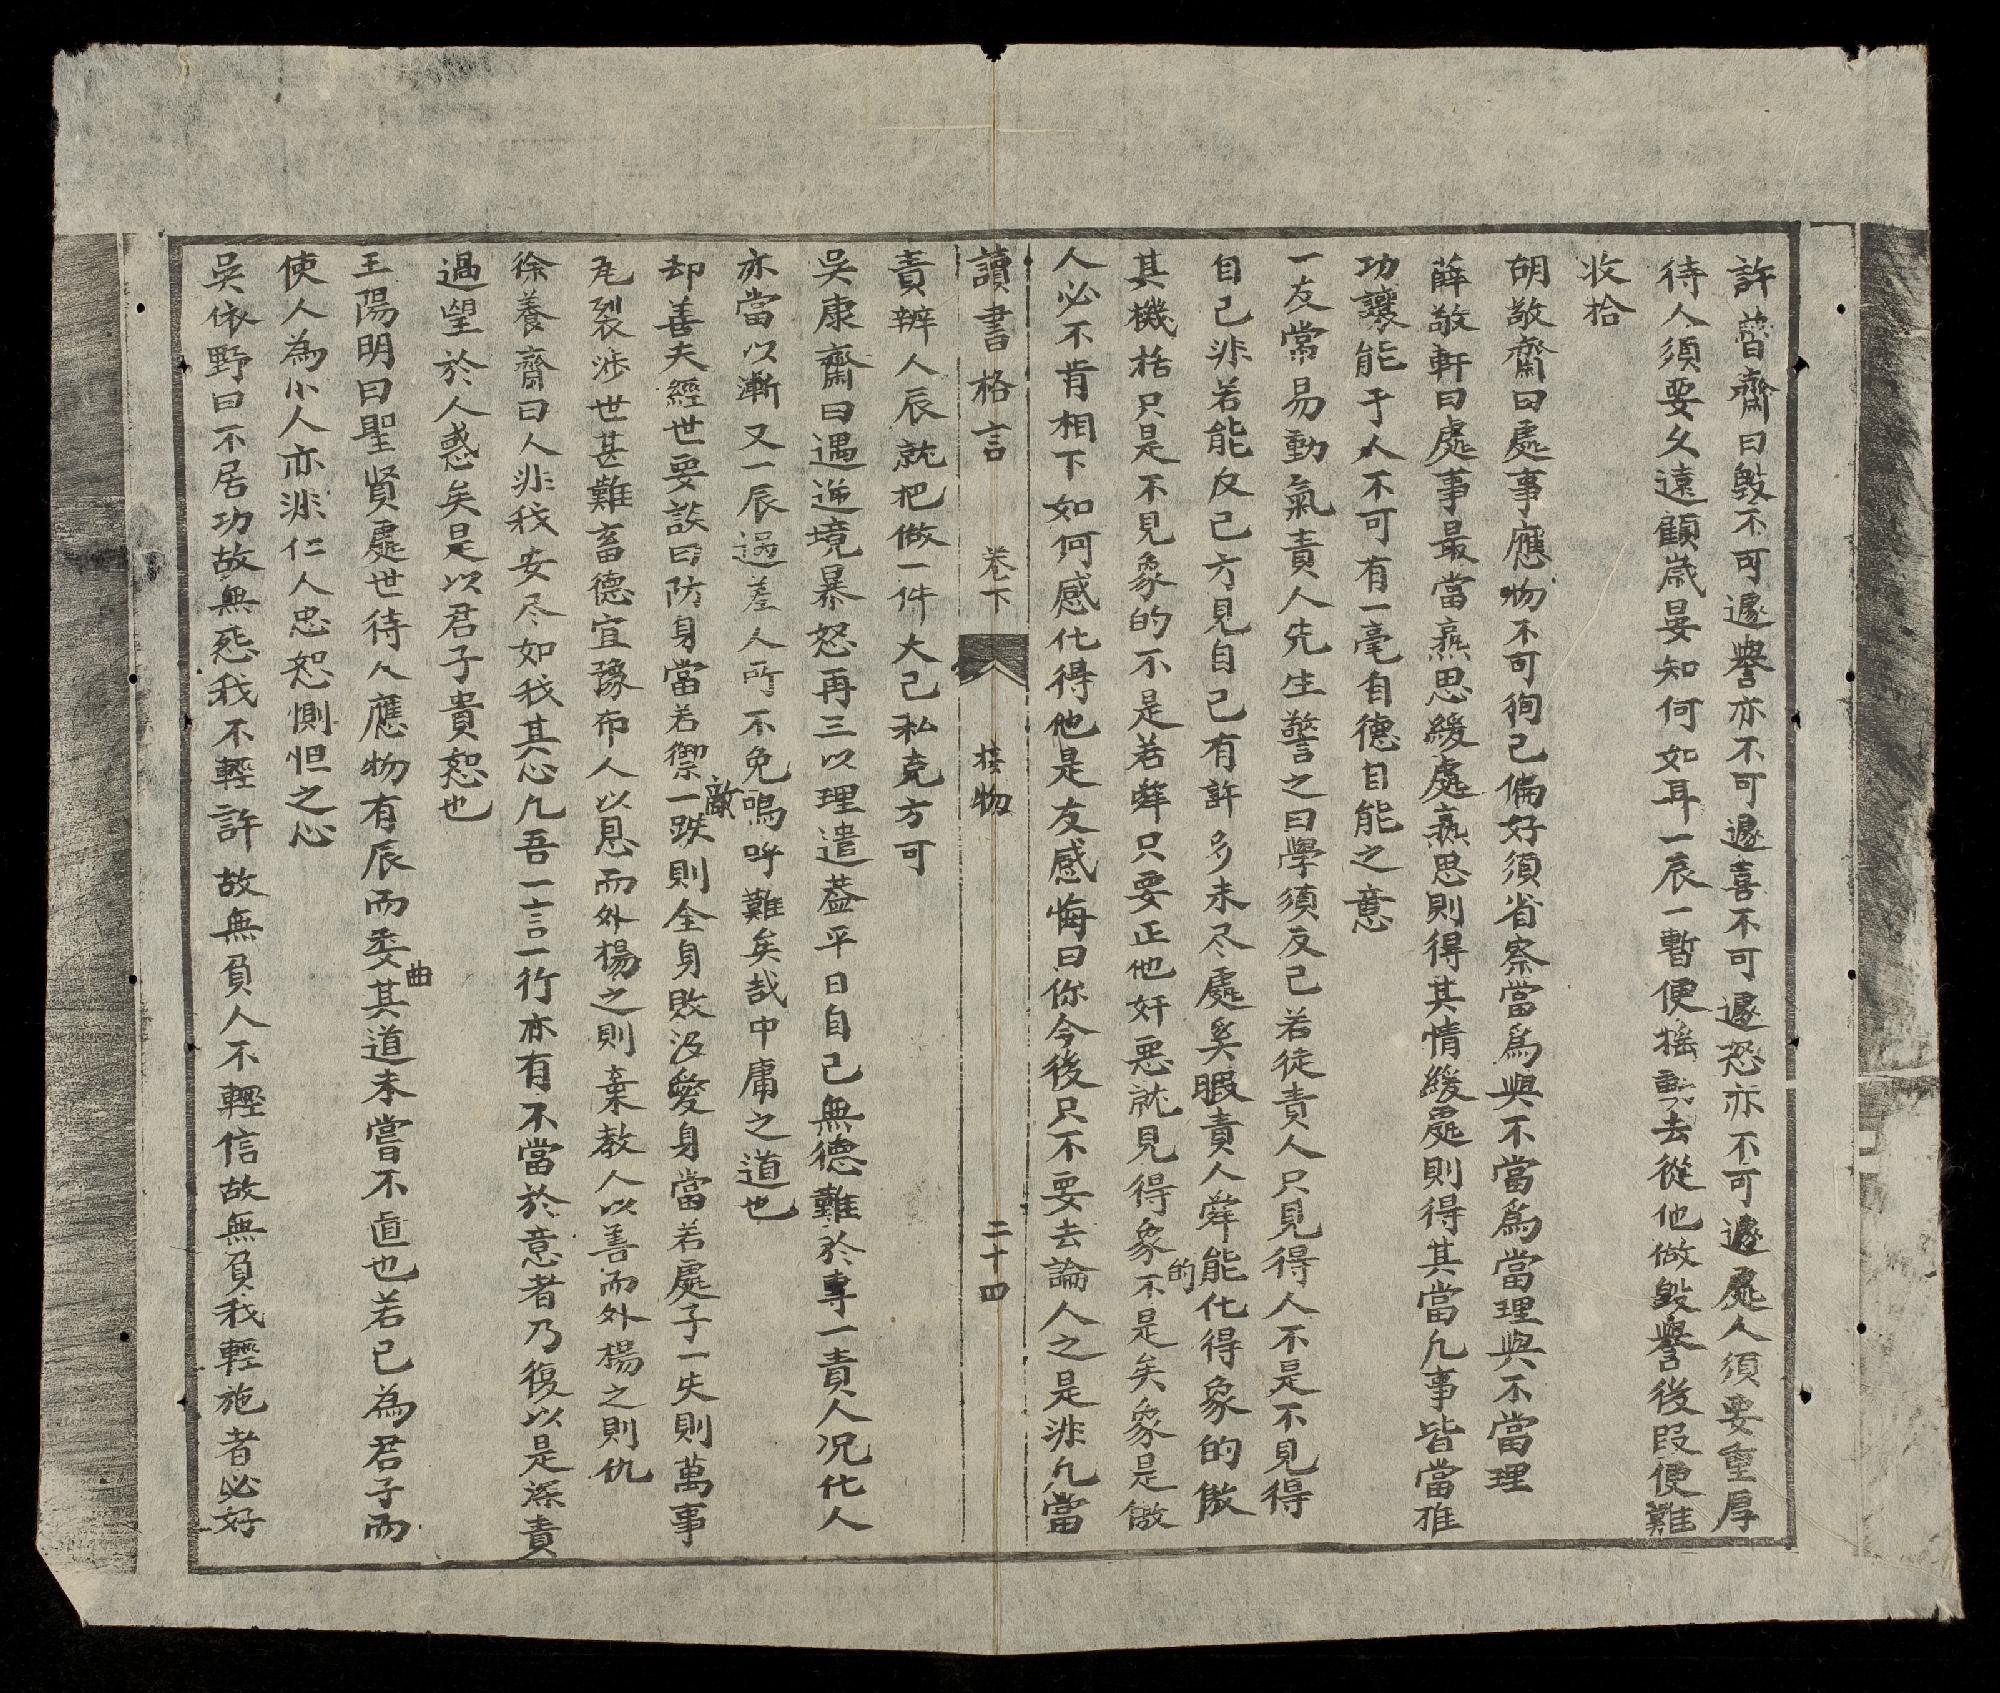 許魯齋曰毀不可遽譽亦不可遽喜不可遽恐亦不可遽處人須要重厚
待人須要久遠顧歲晏知何如耳一辰一暫便搖動去從他做毀譽後段便難
收拾
胡敬齋曰處事應物不可徇己偏好須省察當爲與不當爲當理與不當理
薛敬軒曰處事最當熟思緩處熟思則得其情緩處則得其當凡事皆當推
功讓能于人不可有一毫自德自能之意
一友常易動氣責人先生警之曰學須反己若徒責人只見得人不是不見得
自己非若能反己方見自己有許多未尽處奚暇責人舜能化得象的傲
其機括只是不見象的不是若舜只要正他奸惡就見得象的不是矣象是傲
人必不肯相下如何感化得他是友感悔曰你今後只不要去論人之是非凡當
讀書格言 卷下 接物 二十四
責辨人辰就把做一件大己私克方可
吳康齋曰遇逆境暴怒再三以理遣葢平日自己無德難於專一責人况化人
亦當以漸又一辰過差人所不免嗚呼難矣哉中庸之道也
却善夫經世要談曰防身當若禦敵一跌則全身敗没愛身當若處子一失則萬事
瓦裂涉世甚難畜德宜豫布人以恩而外揚之則棄教人以善而外揚之則仇
徐養齋曰人非我安尽如我其心凡吾一言一行亦有不當於意者乃復以是深責
過望於人惑矣是以君子貴恕也
王陽明曰聖贤處世待人應物有辰而委曲其道未嘗不直也若己為君子而
使人為小人亦非仁人忠恕惻怛之心
吳依野曰不居功故無恐我不輕許故無負人不輕信故無負我輕施者必好